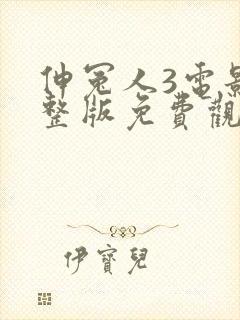 伸冤人3電影
整版免費觀
伊寶兒